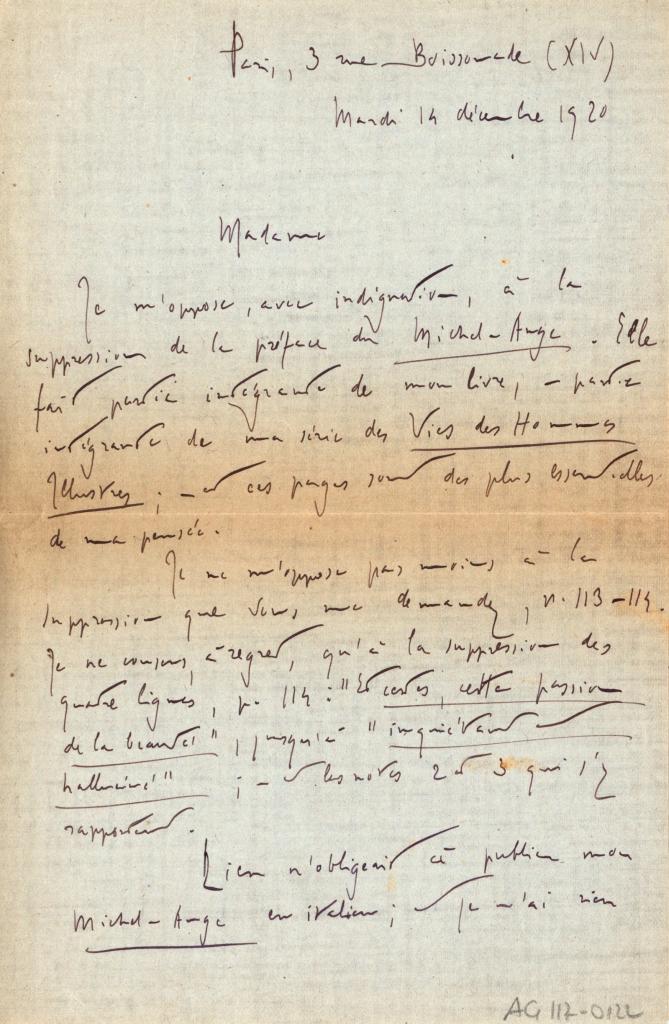 Paris, 3 rue Boissonade (XIV)
Mardi 14 décembre 1920
Madame
Je m'oppose, avec indignation, à la
suppression de la préface du Michel-Ange. Elle
fait partie intégrante de mon livre, – partie
intégrante de ma série des Vies des Hommes
Illustres ; – et ces pages sont des plus essentielles
de ma pensée.
Je ne m'oppose pas moins à la
suppression que vous me demandez, p. 113–114.
Je ne consens, à regret, qu'à la suppression des
quatre lignes, p. 114 : "Et certes, cette passion
de la beauté", jusqu'à "inquiétant et
halluciné" ; – et les notes 2 et 3 qui s'y
rapportent.
Rien n'obligeait à publier mon
Michel-Ange en italien ; et je n'ai rien
AG 112-0122